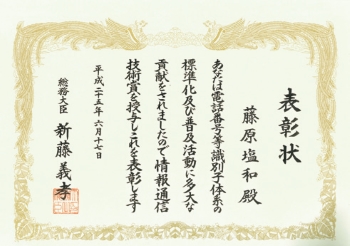 表彰状
藤原塩和殿
あなたは電話番号等識別子体系の
標準化及び普及活動に多大な
貢献をされましたので情報通信
技術賞を授与しこれを表彰します
平成二十五年六月十七日
総務大臣 新藤義孝